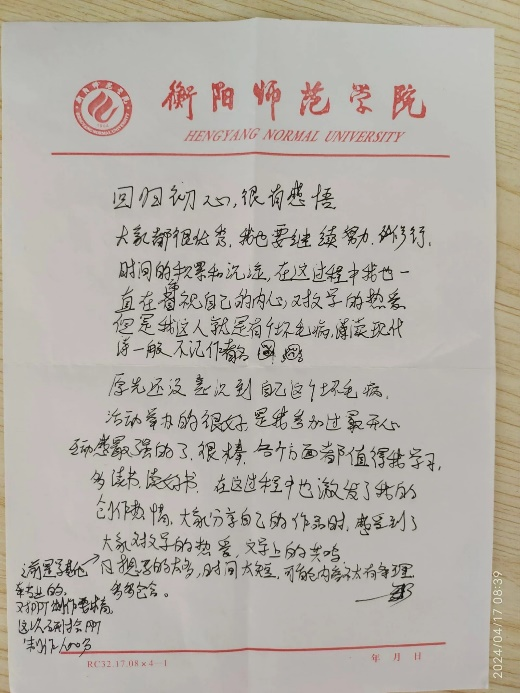 衡阳师范学院
HENGYANG NORMAL UNIVERSITY
回归初心,很有感悟
大家都很优秀,我也要继续努力,修行,
时间的积累和沉淀,在这过程中我也一
直在审视自己的内心,对文学的热爱
但是我这人就是有个坏毛病,读英现代
诗一般不记作者名
原先还没意识到自己这个坏毛病,
活动举办的很好,是我参加过最开心
互动感最强的了,很棒,各个方面都值得我学习,
多读书,读好书,在这过程中也激发了我的
创作热情,大家分享自己的作品时,感受到了
大家对文学的热爱,文学上的共鸣
想写的太多,时间太短,可能内容不太有条理
多多包含。
之前是学其他
专业的,
对PPT制作要精,
这次研讨会PPT
制作
RC32.17.08×4—1
年 月 日
2024/04/17 08:39